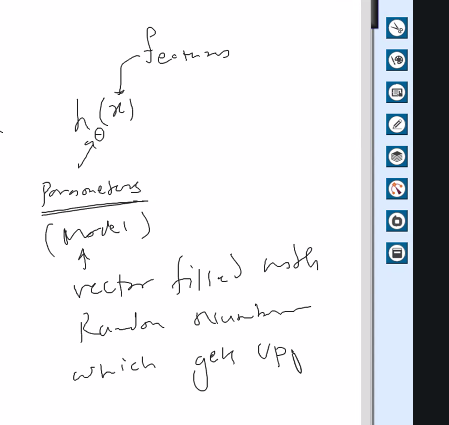 features
h_θ(x)
Parameters
(Model)
vector filled with
Random Number
which gets UPD